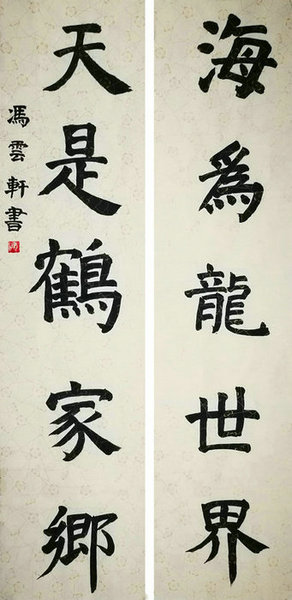 海為龍世界
天是鶴家鄉
馮雲軒書